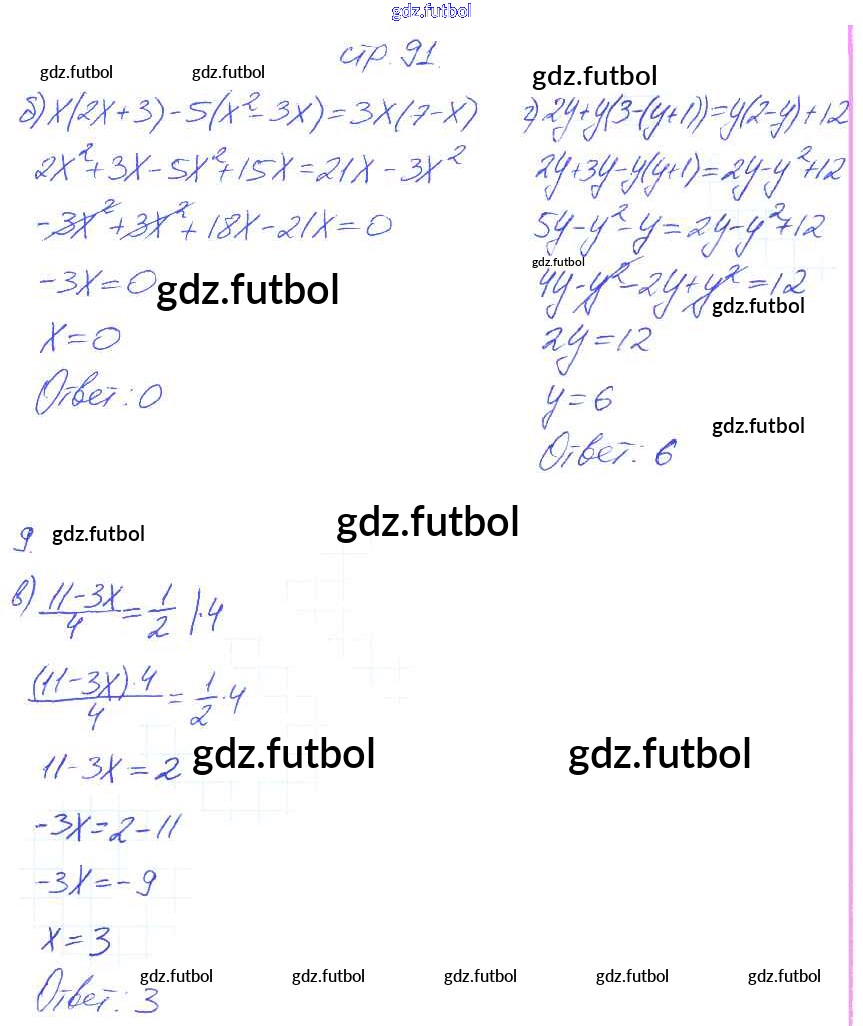 gdz.futbol
стр. 91.
gdz.futbol gdz.futbol gdz.futbol
б) x(2x+3)-5(x²-3x)=3x(7-x)
2x²+3x-5x²+15x=21x-3x²
-3x²+3x²+18x-21x=0
-3x=0 gdz.futbol
x=0
Ответ: 0
г) 2y+y(3-(y+1))=y(2-y)+12
2y+3y-y(y+1)=2y-y²+12
5y-y²-y=2y-y²+12
gdz.futbol
4y-y²-2y+y²=12
gdz.futbol
2y=12
y=6
gdz.futbol
Ответ: 6
gdz.futbol
9. gdz.futbol
в) (11-3x)/4=1/2 |·4
((11-3x)·4)/4=1/2·4
11-3x=2 gdz.futbol gdz.futbol
-3x=2-11
-3x=-9
x=3
gdz.futbol gdz.futbol gdz.futbol gdz.futbol gdz.futbol
Ответ: 3